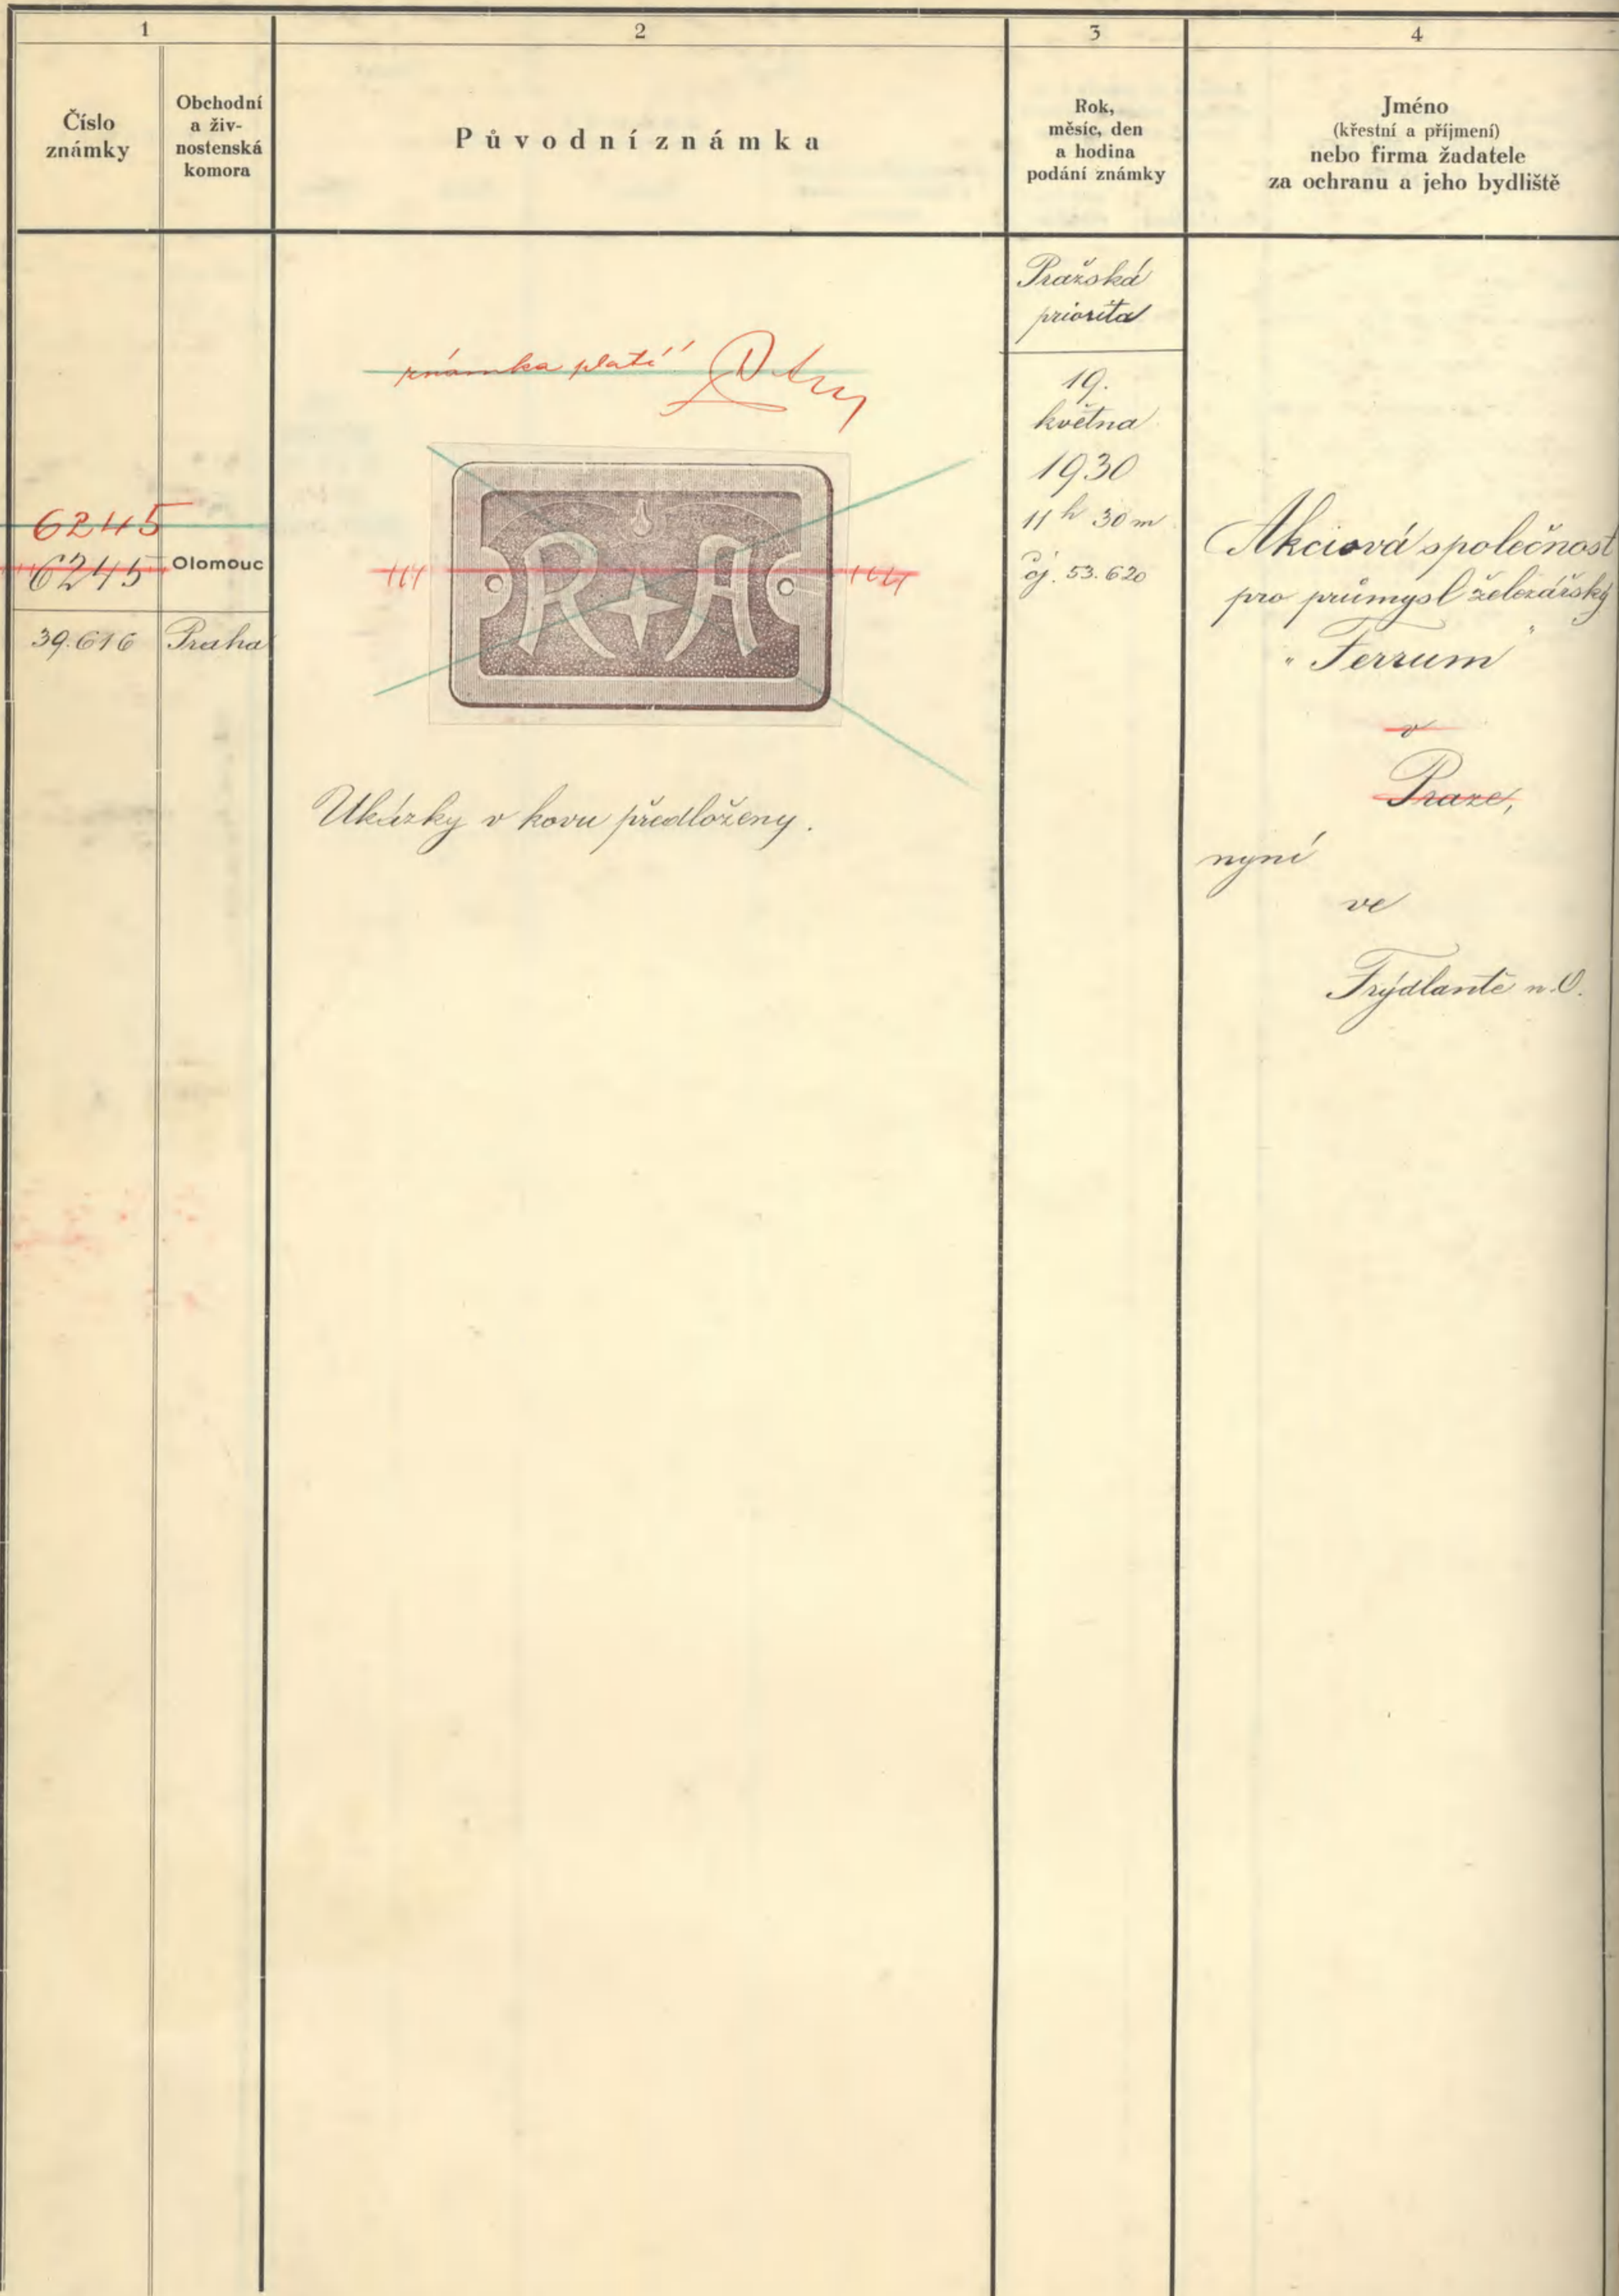 1
2
3
4
Číslo
známky
Obchodní
a živ-
nostenská
komora
Původní známka
Rok,
měsíc, den
a hodina
podání známky
Jméno
(křestní a příjmení)
nebo firma žadatele
za ochranu a jeho bydliště
6245
6245
Olomouc
39.616
Praha
známka platí!
R A
Ukázky v kovu předloženy.
Pražská
priorita
19.
května
1930
11 h 30 m
čj. 53.620
Akciová společnost
pro průmysl železářský
"Ferrum"
v
Praze,
nyní
ve
Frýdlantě n.O.